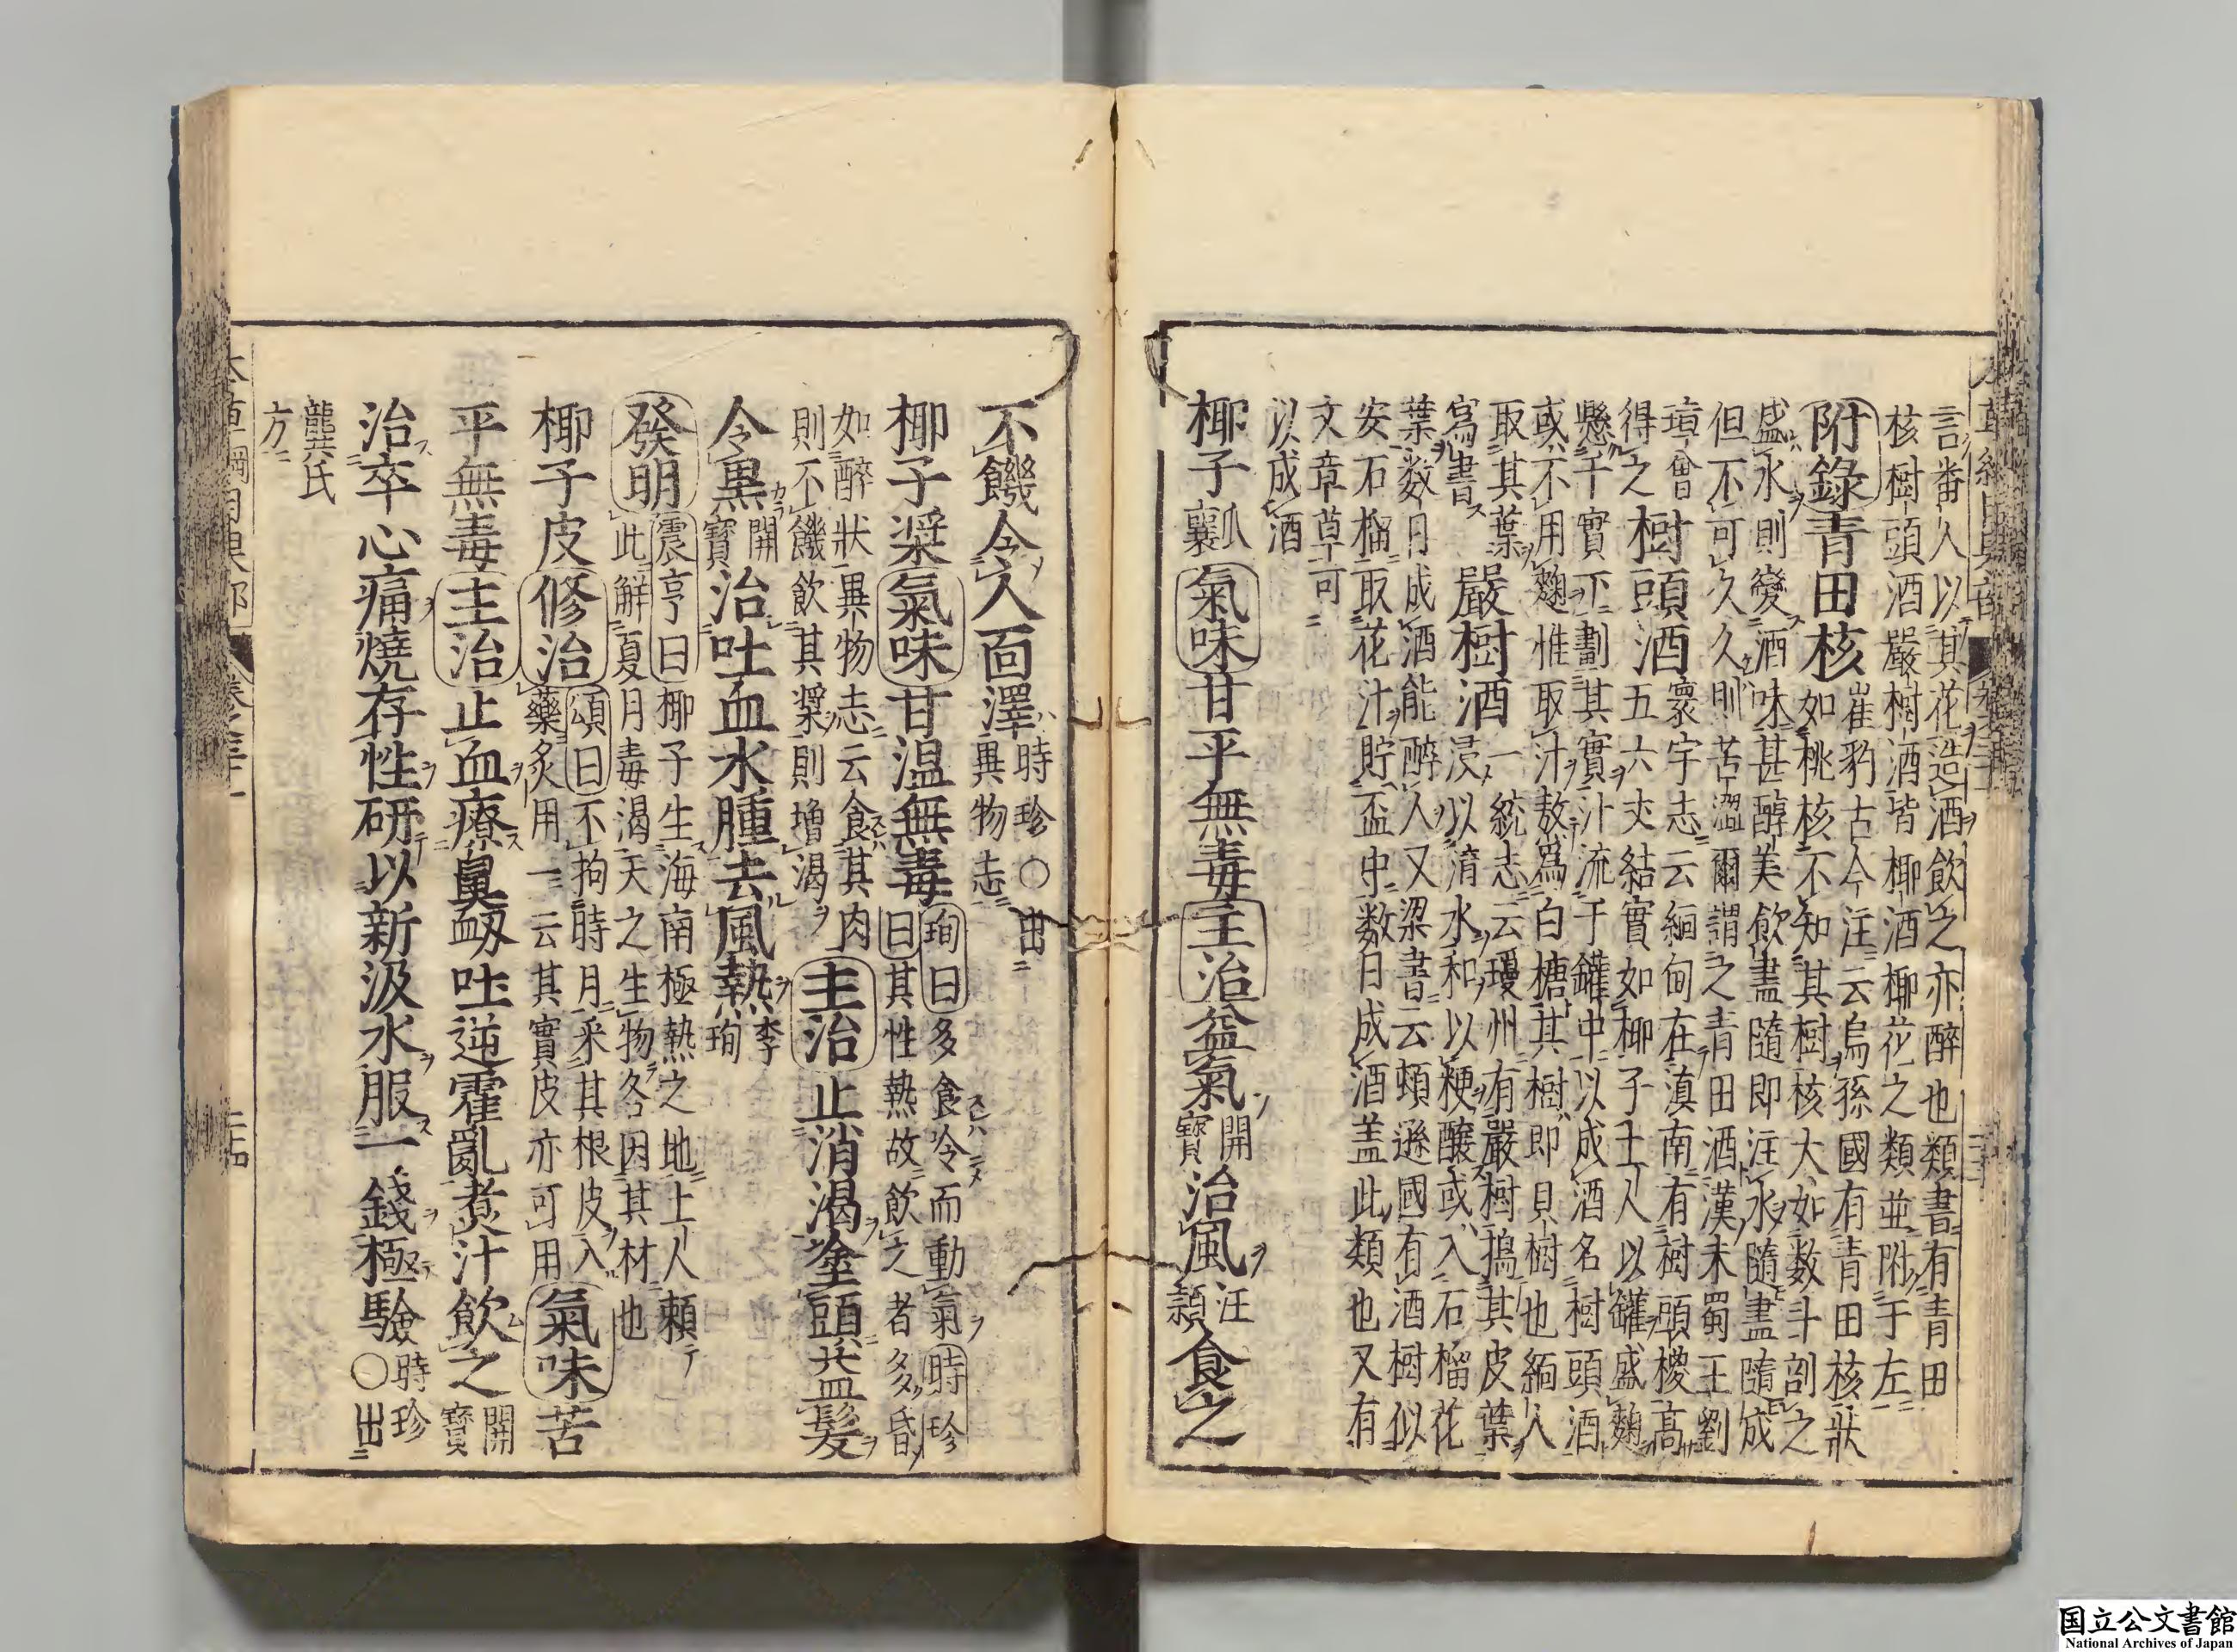 言畨人以其花造酒飲之亦醉也類書有青田
核樹頭酒嚴樹酒皆椰酒椰花之類並附于左
附錄青田核
崔豹古今注云烏孫國有青田核狀
如桃核不知其樹核大如数斗剖之
盛水則變酒味甚醇美飲盡隨即注水隨盡隨成
但不可久久則苦澀爾謂之青田酒漢末蜀王劉
璋曾
得之
樹頭酒
寰宇志云緬甸在滇南有樹頭椶高
五六丈結實如椰子土人以罐盛麴
懸于實下劃其實汁流于罐中以成酒名樹頭酒
或不用麴惟取汁熬爲白糖其樹即貝樹也緬人
取其葉
寫書
嚴樹酒
一統志云瓊州有嚴樹搗其皮葉
浸以淸水和以粳釀或入石榴花
葉数日成酒能醉人又梁書云頓遜國有酒樹似
安石榴取花汁貯盃中数日成酒盖此類也又有
文章草可
以成酒
椰子
瓜
襄
氣味甘平無毒主治益氣
開
寶
治風
汪
頴
食之
不饑令人面澤
時珍○出
異物志
椰子漿氣味甘温無毒
珣曰多食冷而動氣時珍
曰其性熱故飲之者多昏
如醉狀異物志云食其肉
則不饑飲其漿則増渴
主治止消渴塗頭益髪
令黒
開
寶
治吐血水腫去風熱
李
珣
發明
震亨曰椰子生海南極熱之地土人賴
此解夏月毒渴天之生物各因其材也
椰子皮修治
頌曰不拘時月采其根皮入
藥炙用一云其實皮亦可用
氣味苦
平無毒主治止血療鼻衂吐逆霍亂煮汁飲之
開
寶
治卒心痛燒存性研以新汲水服一錢極驗
時珍
○出
龔氏
方
国立公文書館
National Archives of Japan